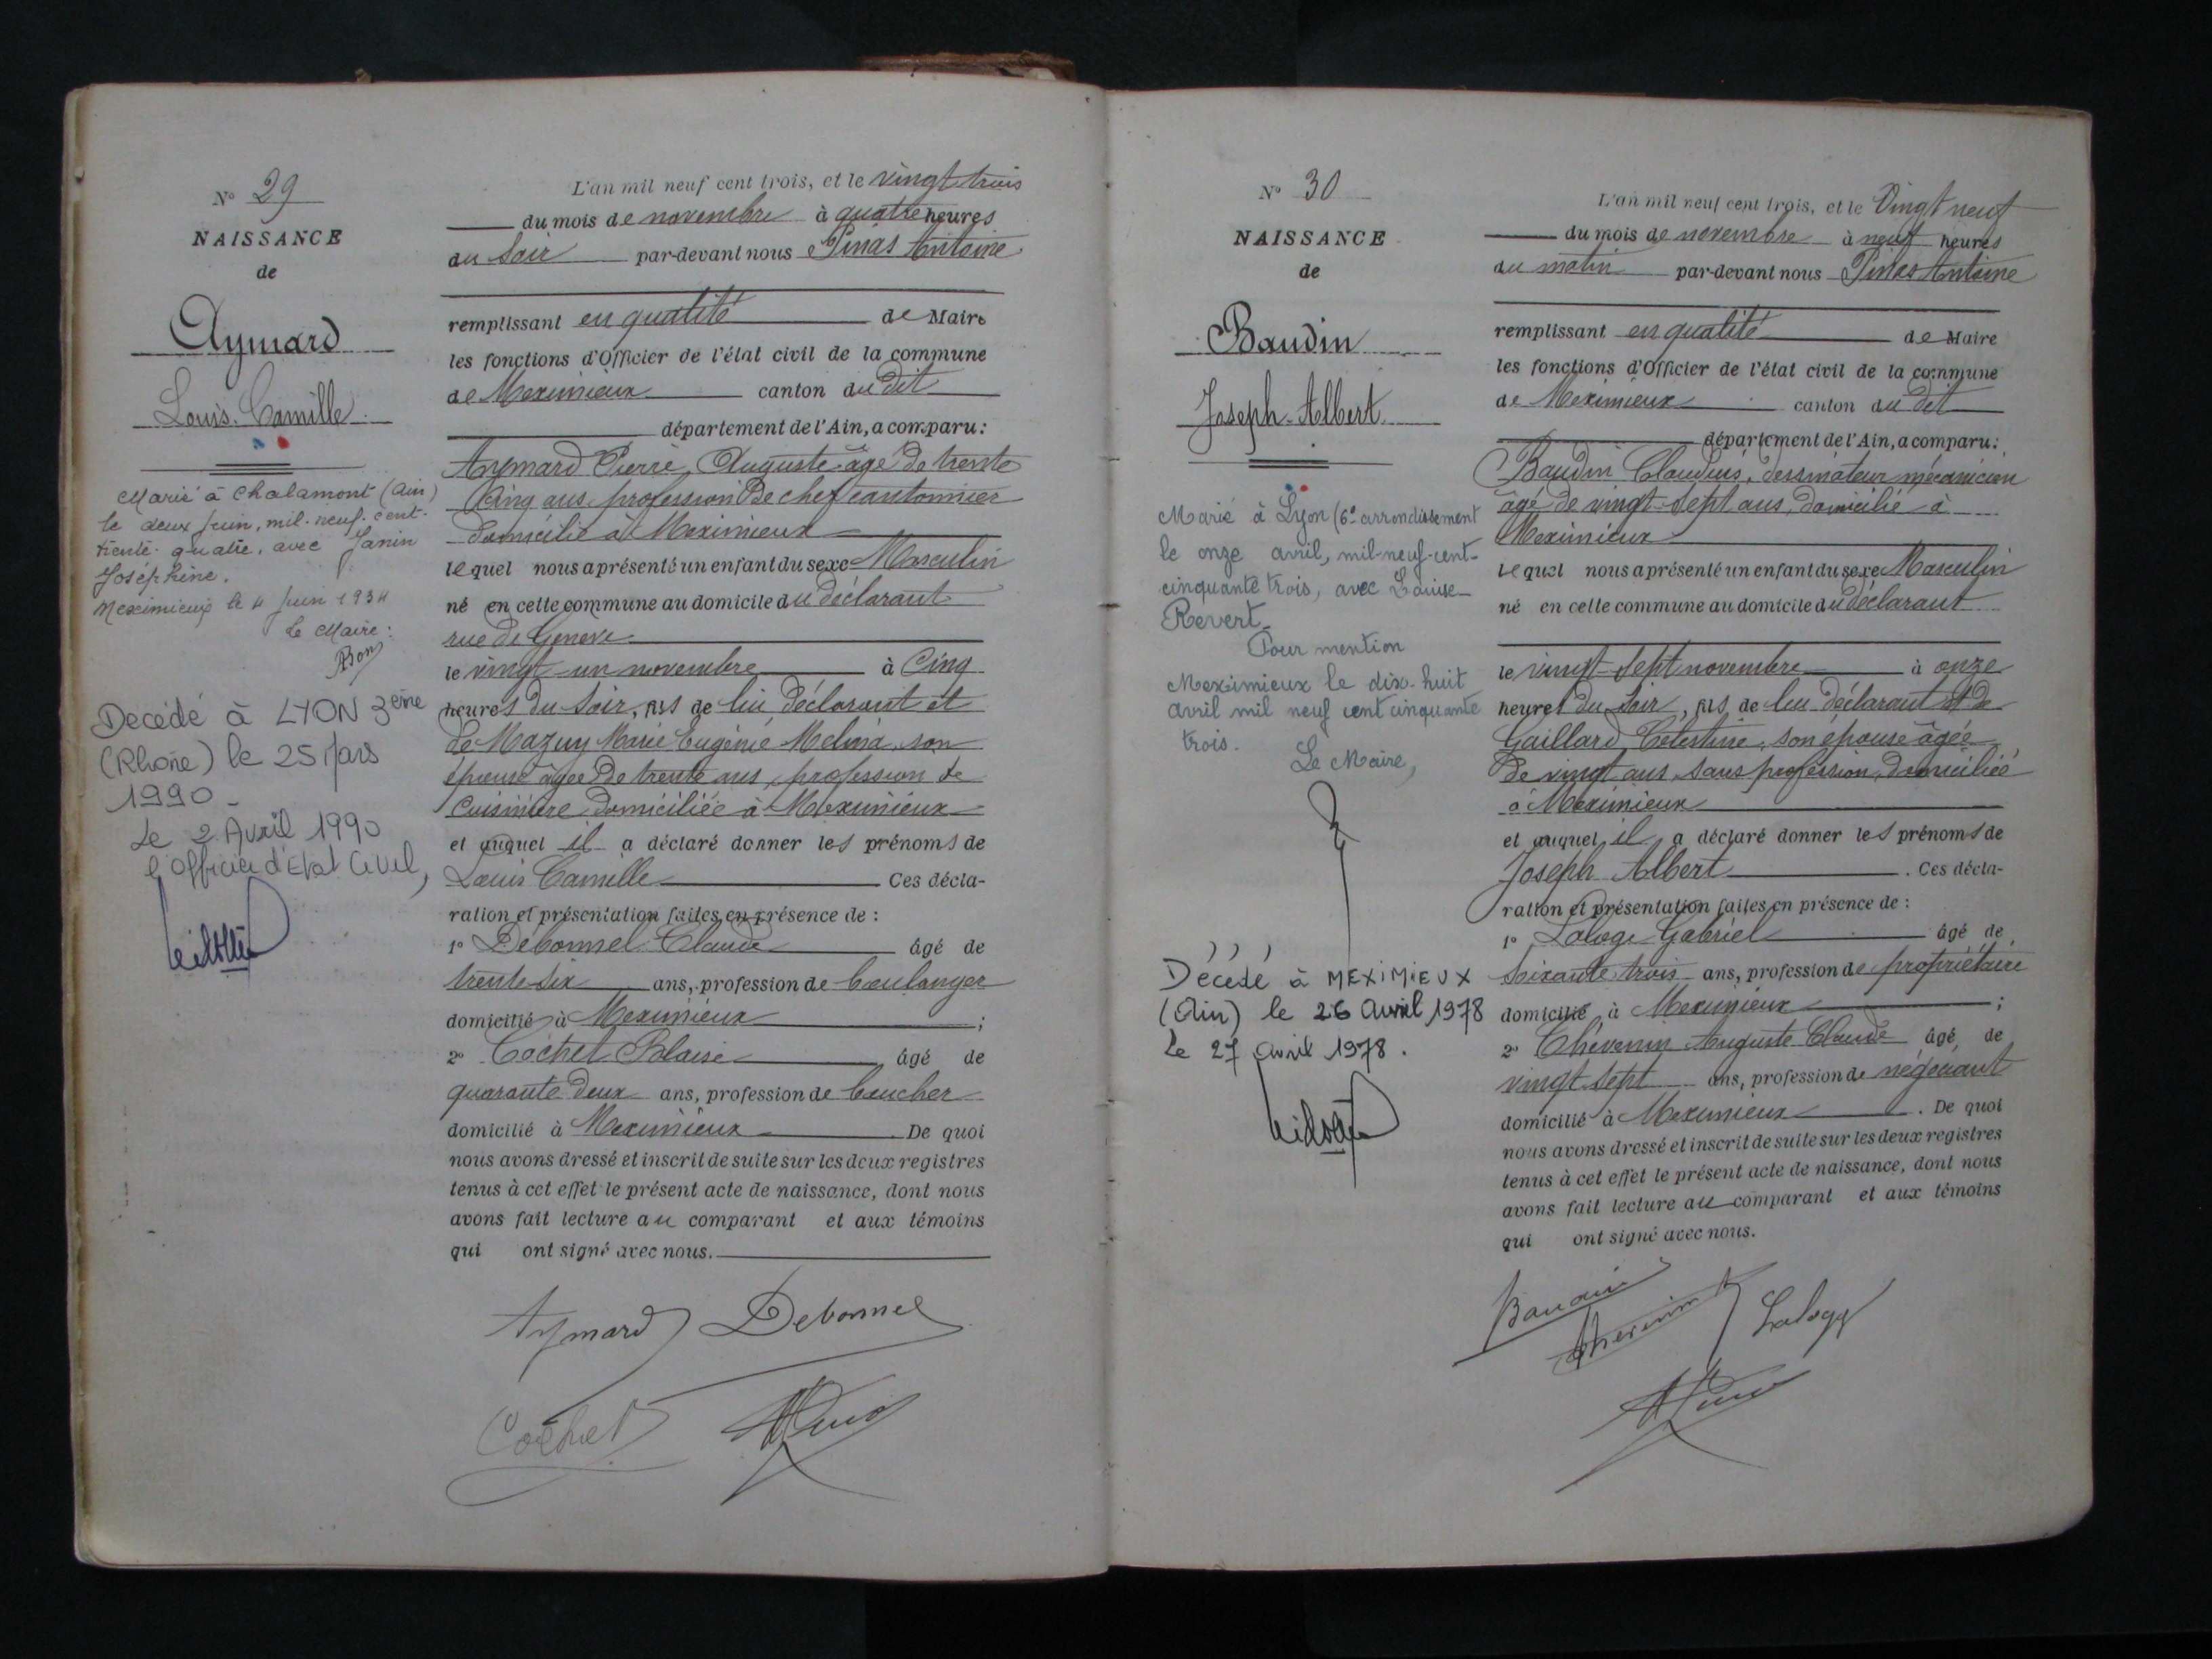 N° 29
NAISSANCE
de
Aymard
Louis. Camille.
Marié à Chalamont (Ain)
le deux Juin, mil-neuf-cent-
trente-quatre, avec Janin
Joséphine.
Meximieux le 4 Juin 1934
Le Maire:
Décédé à LYON 3ème
(Rhône) le 25 Mars
1990
Le 2 Avril 1990
l'Officier d'Etat Civil,
L'an mil neuf cent trois, et le vingt trois
du mois de novembre à quatre heures
du soir par-devant nous Pinas Antoine
remplissant en qualité de Maire
les fonctions d'Officier de l'état civil de la commune
de Meximieux canton du dit
département de l'Ain, a comparu:
Aymard Pierre, Auguste âgé de trente
cinq ans profession de chef cantonnier
domicilié à Meximieux
lequel nous a présenté un enfant du sexe Masculin
né en cette commune au domicile du déclarant
rue de Genève
le vingt-un novembre à Cinq
heures du soir, fils de lui déclarant et
de Mazuy Marie Eugénie Melina, son
épouse âgée de trente ans, profession de
cuisinière domiciliée à Meximieux
et auquel il a déclaré donner les prénoms de
Louis Camille Ces décla-
ration et présentation faites en présence de:
1° Debonnel Claude âgé de
trente-six ans, profession de boulanger
domicilié à Meximieux;
2° Cochet Blaise âgé de
quarante deux ans, profession de boucher
domicilié à Meximieux. De quoi
nous avons dressé et inscrit de suite sur les deux registres
tenus à cet effet le présent acte de naissance, dont nous
avons fait lecture au comparant et aux témoins
qui ont signé avec nous.
Aymard Debonnel
Cochet
N° 30
NAISSANCE
de
Baudin
Joseph-Albert
Marié à Lyon (6e arrondissement
le onze avril, mil-neuf-cent-
cinquante trois, avec Louise
Revert
Pour mention
Meximieux le dix-huit
avril mil neuf cent cinquante
trois.
Le Maire,
Décédé à MEXIMIEUX
(Ain) le 26 Avril 1978
Le 27 Avril 1978.
L'an mil neuf cent trois, et le Vingt neuf
du mois de novembre à neuf heures
du matin par-devant nous Pinas Antoine
remplissant en qualité de Maire
les fonctions d'Officier de l'état civil de la commune
de Meximieux canton du dit
département de l'Ain, a comparu:
Baudin Claudius, dessinateur mécanicien
âgé de vingt-sept ans, domicilié à
Meximieux
lequel nous a présenté un enfant du sexe Masculin
né en cette commune au domicile du déclarant
le vingt-sept novembre à onze
heures du soir, fils de lui déclarant et de
Gaillard, Célestine, son épouse âgée
de vingt ans, sans profession, domiciliée
à Meximieux
et auquel il a déclaré donner les prénoms de
Joseph Albert. Ces décla-
ration et présentation faites en présence de:
1° Laloge Gabriel âgé de
soixante trois ans, profession de propriétaire
domicilié à Meximieux;
2° Thévenin Auguste Claude âgé de
vingt sept ans, profession de négociant
domicilié à Meximieux. De quoi
nous avons dressé et inscrit de suite sur les deux registres
tenus à cet effet le présent acte de naissance, dont nous
avons fait lecture au comparant et aux témoins
qui ont signé avec nous.
Baudin Thévenin Laloge